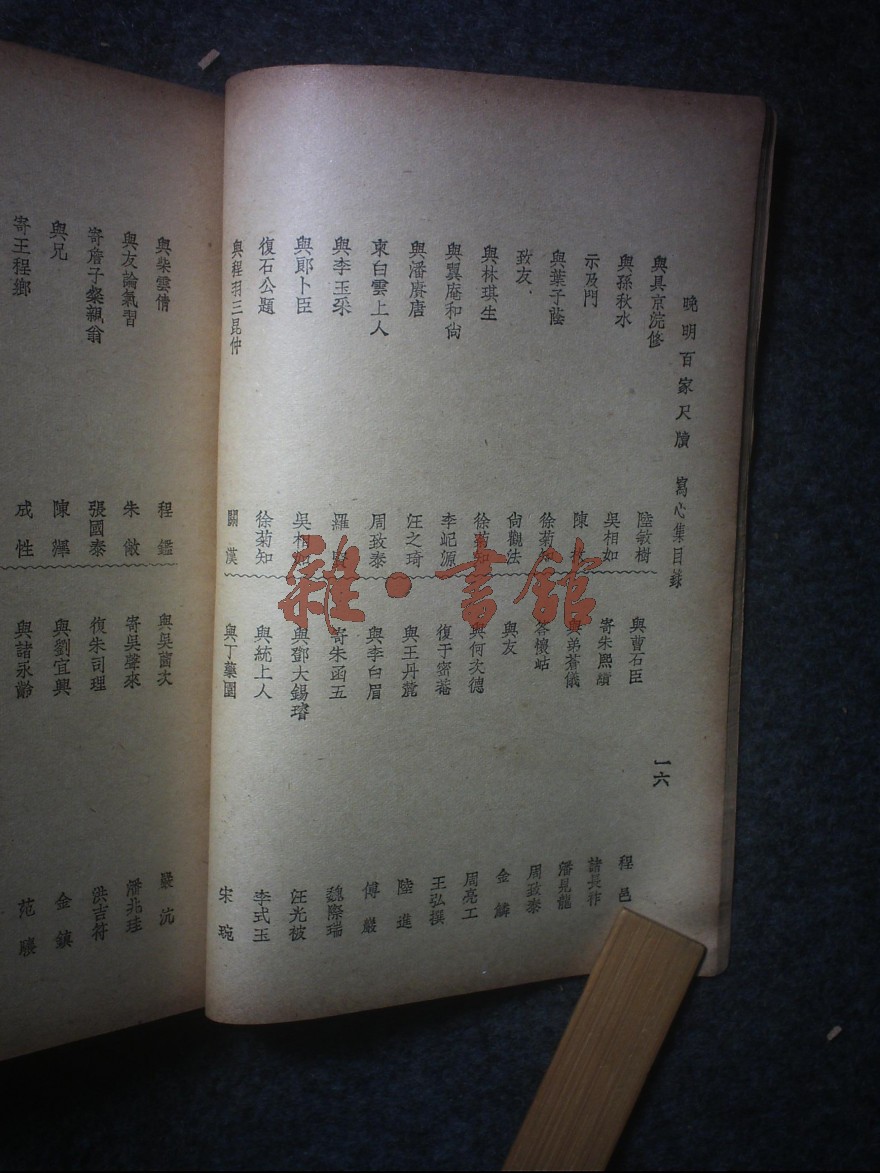 晚明百家尺牘 寫心集目錄
一六
與具京浣修 陸敏樹
與孫秋水 吳相如
示及門 陳
與葉子蔭 徐菊知
致友 尙觀法
與林琪生 徐菊知
與翼庵和尙 李屺源
與潘赓唐 汪之琦
柬白雲上人 周致泰
與李玉采 羅
與郎卜臣 吳相如
復石公題 徐菊知
與程羽三昆仲 關漢
與曹石臣 程邑
寄朱熙績 諸長祚
與弟蒼儀 潘見龍
答懷岵 周致泰
與友 金鏻
與何次德 周亮工
復于密菴 王弘撰
與王丹麓 陸進
與李白眉 傅巖
寄朱函五 魏際瑞
與鄧大錫璿 汪光被
與統上人 李式玉
與丁藥園 宋琬
與柴雲倩 程鑑
與友論氣習 朱斂
寄詹子粲親翁 張國泰
與兄 陳澤
寄王程鄉 成性
與吳薗次 嚴沆
寄吳聲來 潘兆珪
復朱司理 洪吉符
與劉宜興 金鎮
與諸永齡 范驤
雜·書館